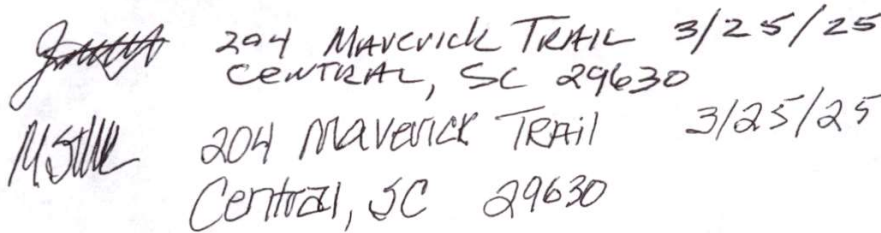 204 MAVERICK TRAIL 3/25/25
CENTRAL, SC 29630
204 MAVERICK TRAil 3/25/25
Central, SC 29630